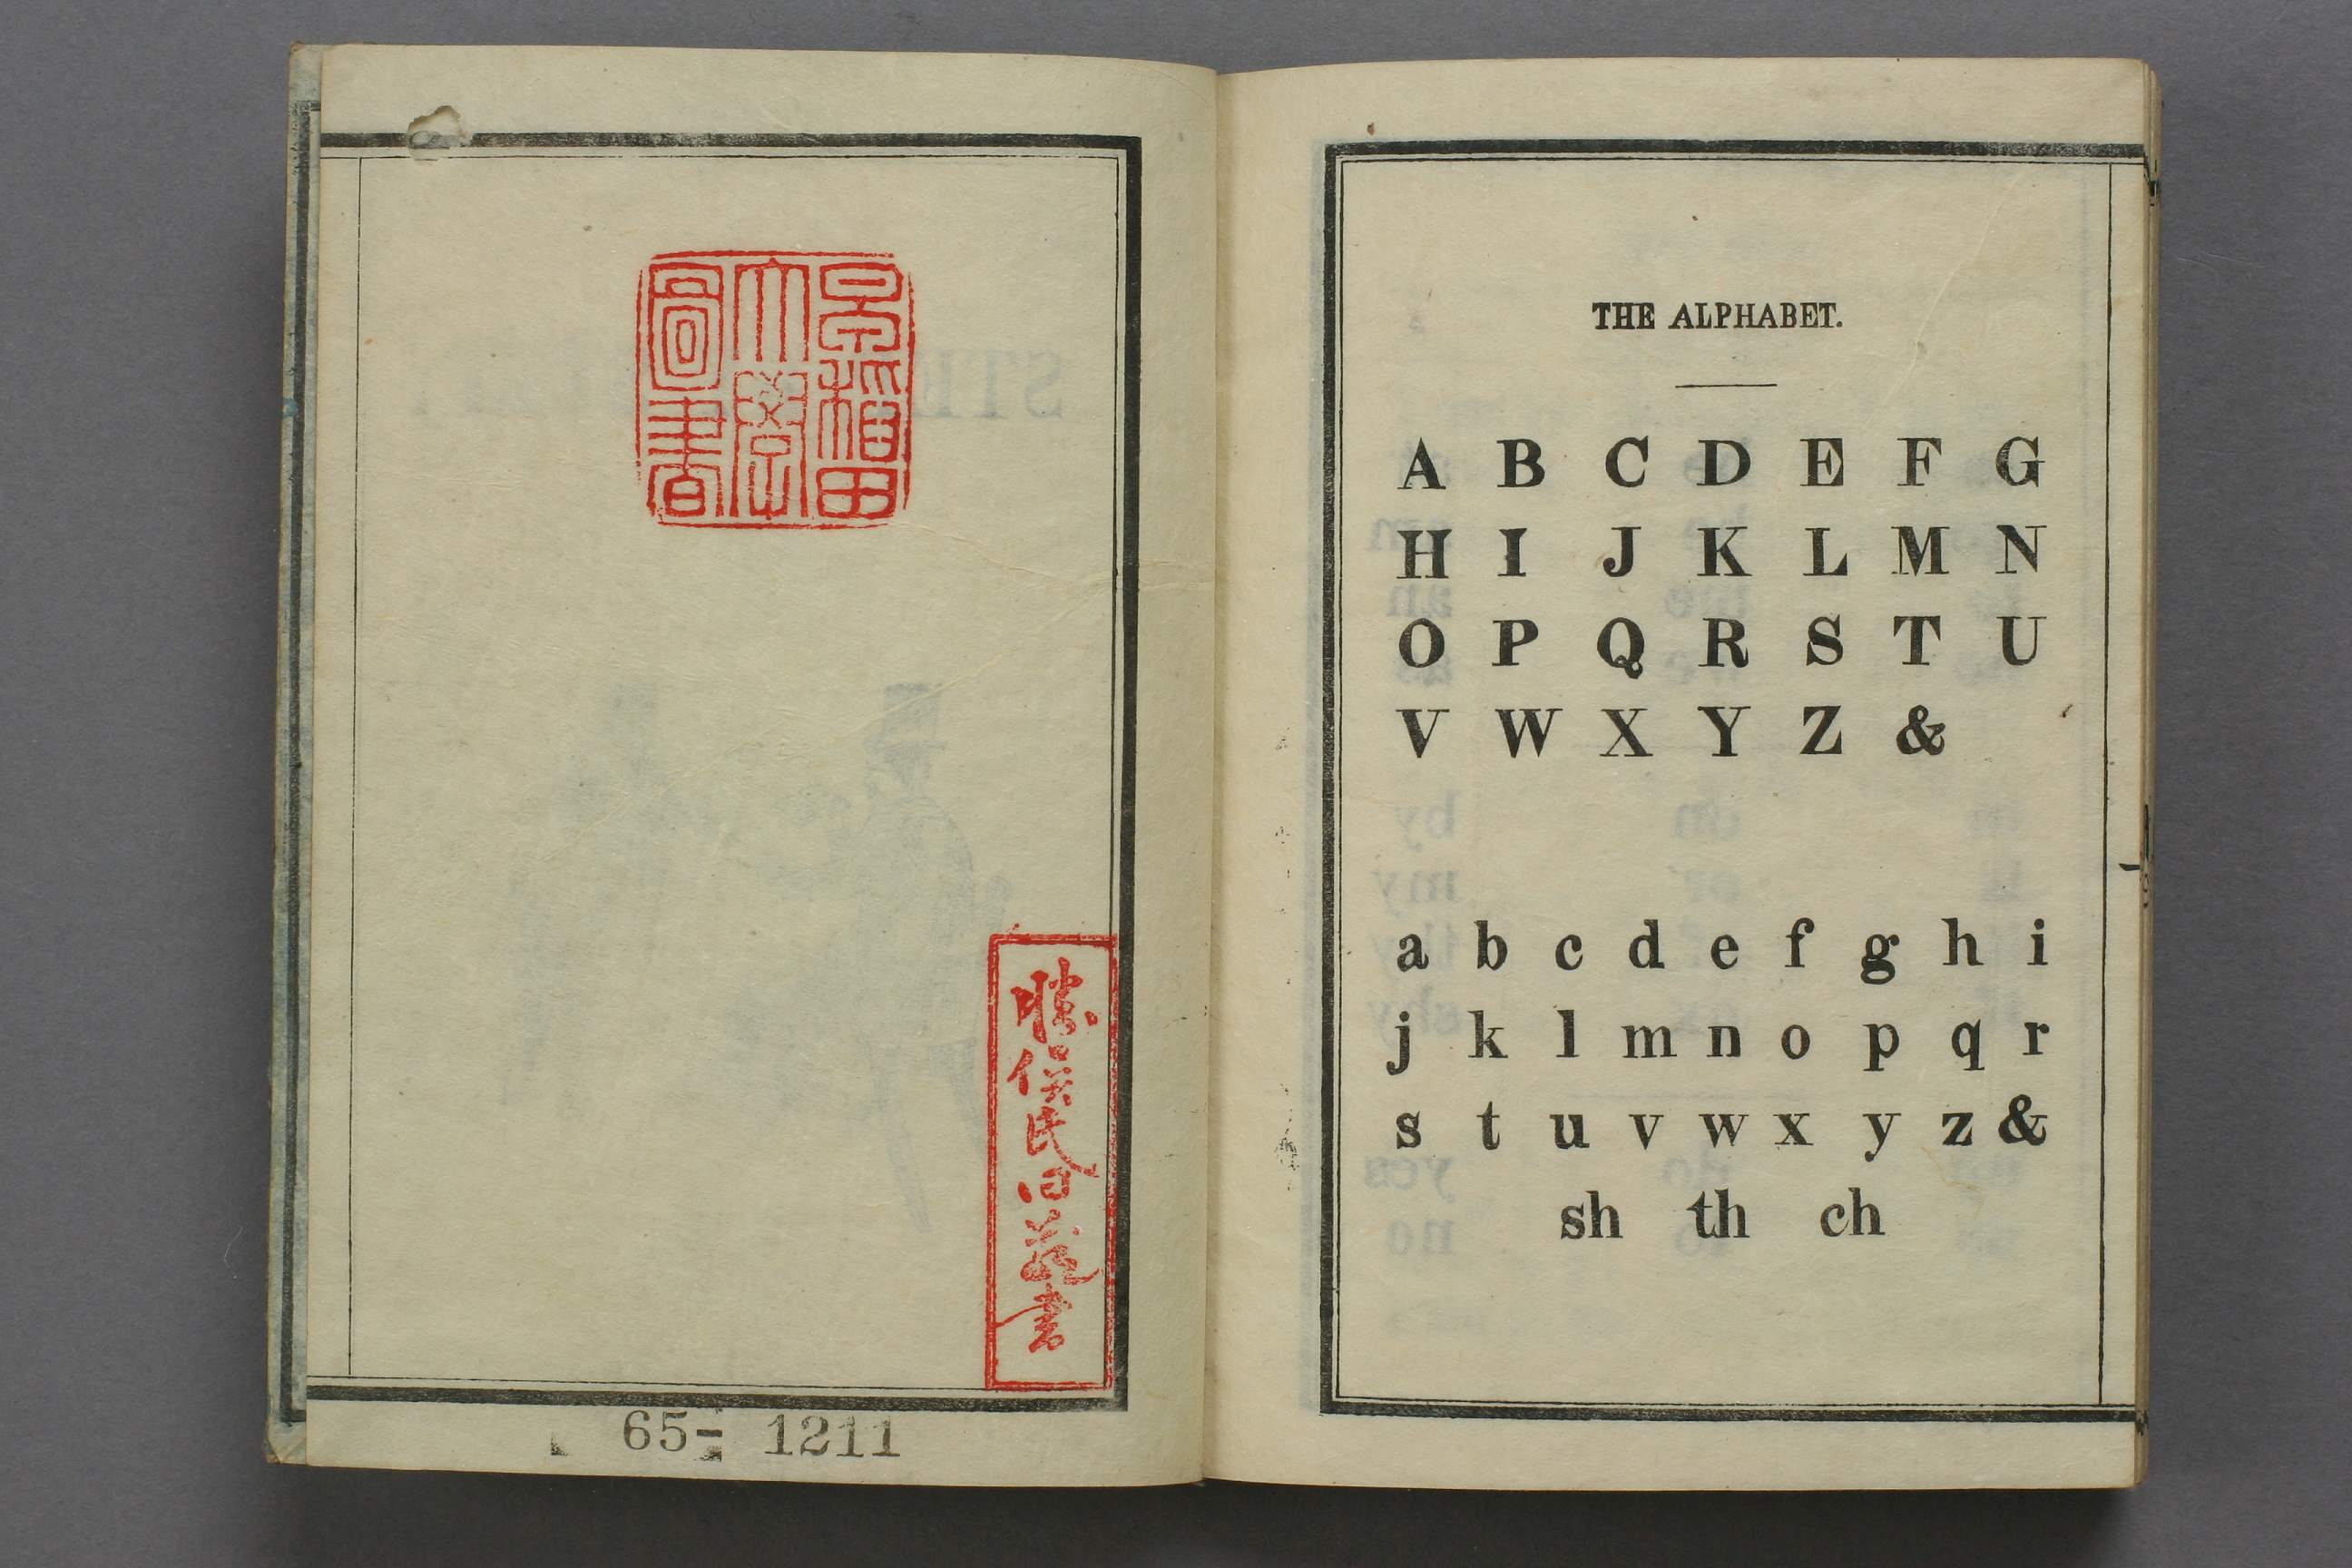 早稲田
大學
圖書
勝俣氏
書
65- 1211
THE ALPHABET.
A B C D E F G
H I J K L M N
O P Q R S T U
V W X Y Z &
a b c d e f g h i
j k l m n o p q r
s t u v w x y z &
sh th ch